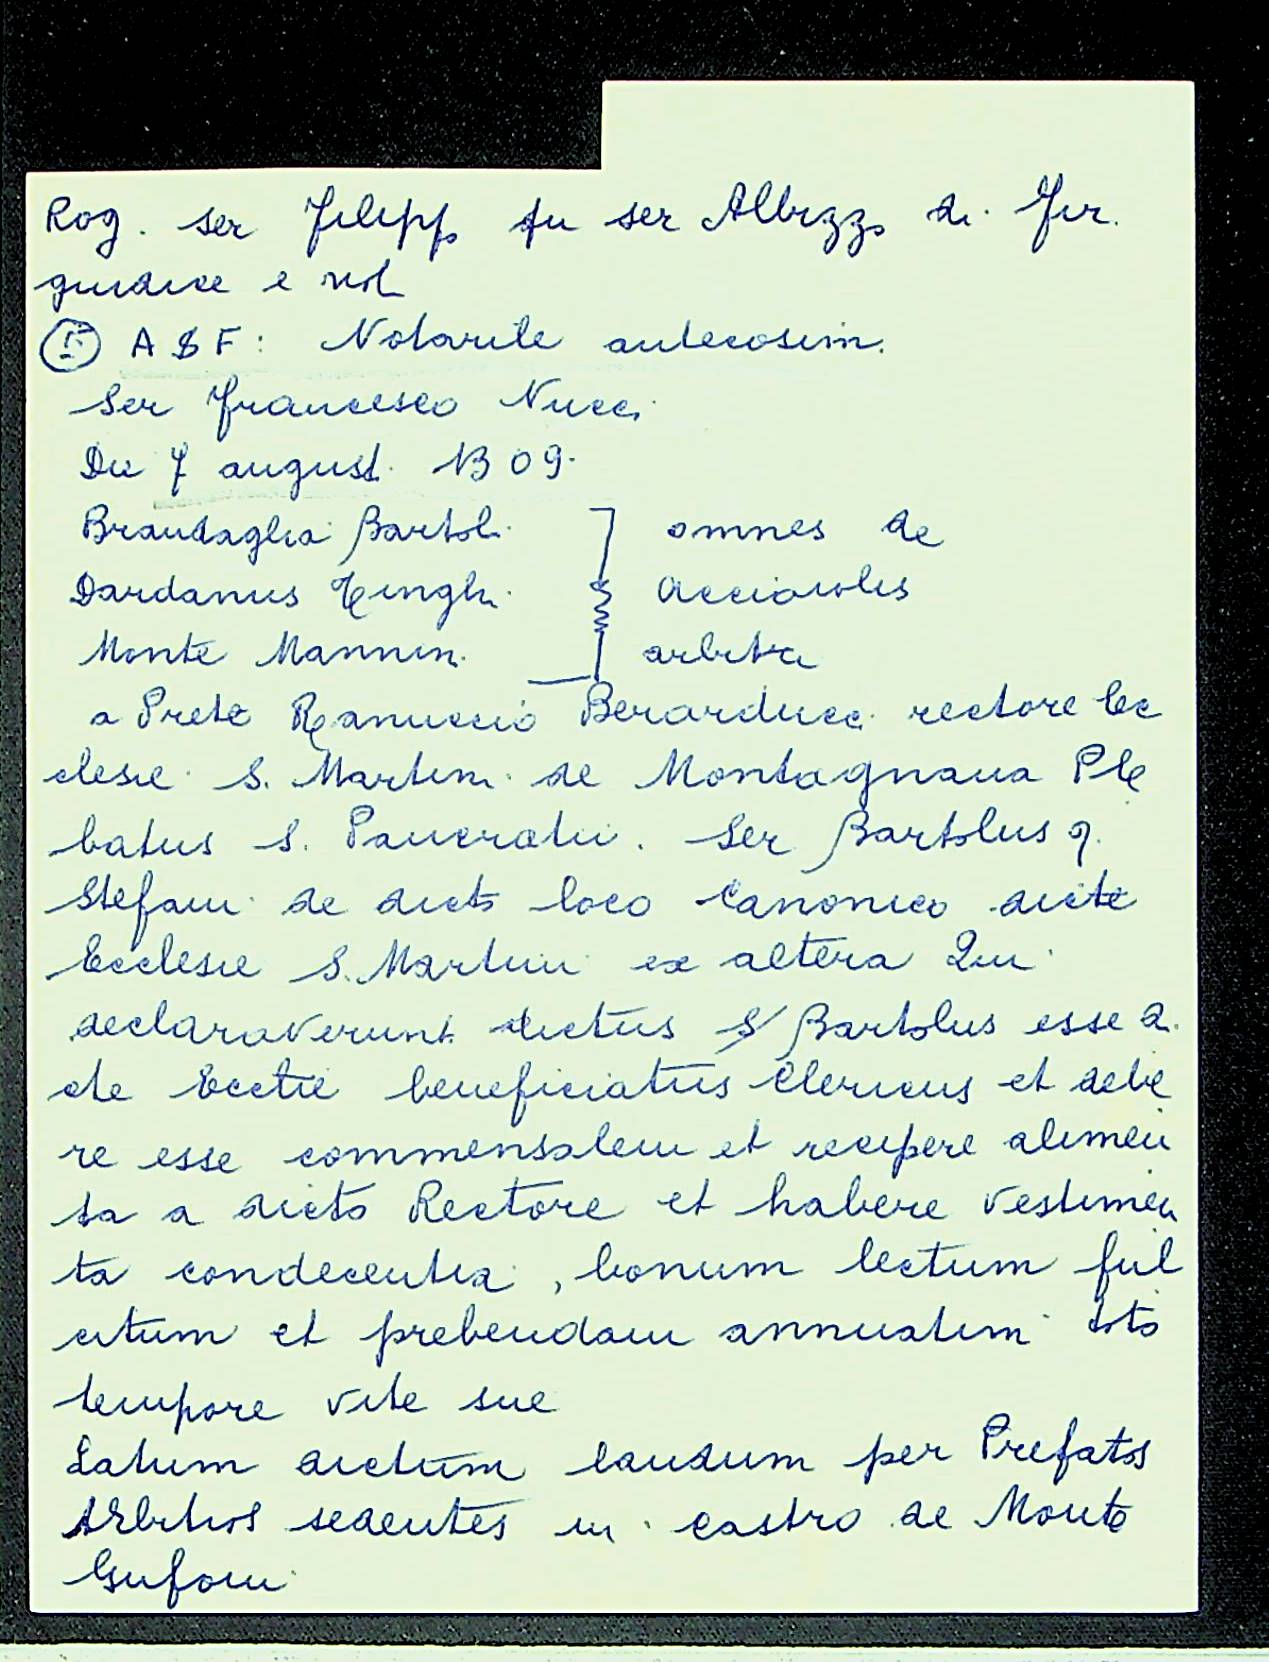 Rog. ser Filippo fu ser Albizzo di Fir.
giudice e not
A S F: Notarile antecosim.
Ser Francesco Nucci
Die 7 august. 1309.
Brandaglia Bartoli omnes de
Dardanus Tinghi Acciaiolis
Monte Mannini arbitri
a Prete Ranuccio Berarducci rectore Ec
clesie S. Martini de Montagnana Ple
batus S. Pancratii. Ser Bartolus q.
Stefani de dicto loco Canonico dicte
Ecclesie S. Martini ex altera Qui
declaraverunt dictus S Bartolus esse d.
cte Eccťie beneficiatus Clericus et debe
re esse commensalem et recipere alimen
ta a dicto Rectore et habere vestimen
ta condecentia, bonum lectum ful
citum et prebendam annuatim toto
tempore vite sue
Latum dictum laudum per Prefatos
Arbitros sedentes in castro de Monte
Gufoni